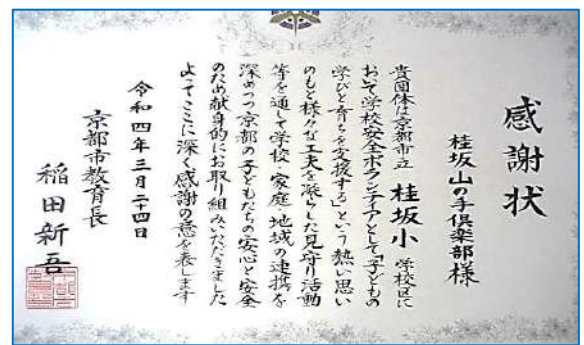 感謝状
桂坂山の手倶楽部様
貴団体は京都市立 桂坂小 学校区に
おいて学校安全ボランティアとして「子どもの
学びと育ちを支援する」という熱い思い
のもと様々な工夫を凝らした見守り活動
等を通して学校・家庭・地域の連携を
深めつつ京都の子どもたちの安心と安全
のため献身的にお取り組みいただきました
よってここに深く感謝の意を表します
令和四年三月二十四日
京都市教育長
稲田新吾